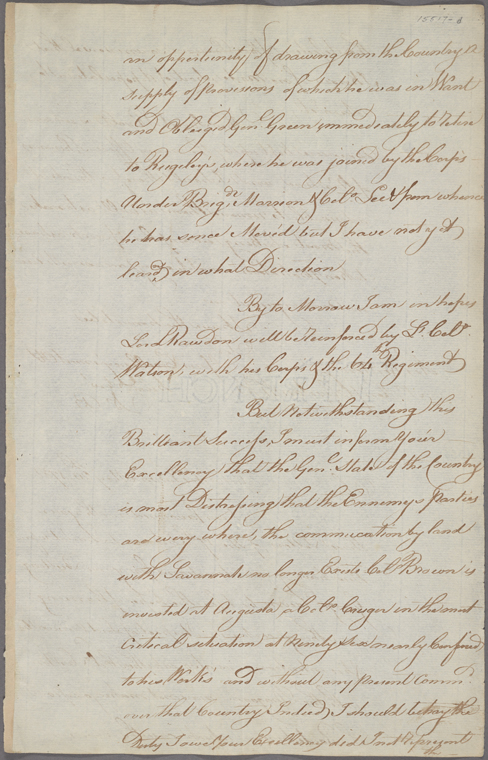 15517-
an oppertunity of drawing from the Country a
supply of Provisions of which he was in Want
and Obleiged Genl. Green immediately to retire
to Rugeley's, where he was joined by the Corps
Under Brigdr. Marrion & Colo. Lee & from whence
he has since Moved but I have not yet
heard in what Direction
By to Morrow I am in hopes
Lord Rawdon will be reinforced by Lt. Colo.
Watson, with his Corps & the 64th Regiment
But Notwithstanding this
Brilliant Success, I must inform Your
Excellency that the Genl. State of the Country
is most Distressing that the Ennemys Parties
are every where, the commucation by land
with Savannah no longer Exists Col Brown is
invested at Augusta & Colo. Cruger in the most
Critical situation at Ninety Six nearly Confined
to his Works and without any present Commd.
over that Country Indeed, I should betray the
Duty I owe Your Excellency did I not represent